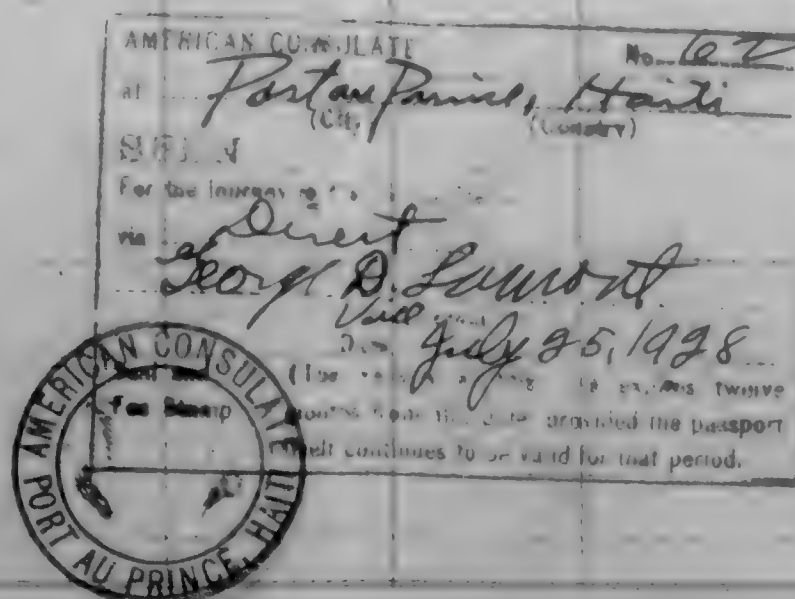 AMERICAN CONSULATE No. 62
at Port au Prince, Haiti
(City) (Country)
SEEN
For the journey to the
via Direct
George D. Lamont
Vice
Date July 25, 1928
(The expires twelve
Fee Stamp months from this date provided the passport
itself continues to be valid for that period.
AMERICAN CONSULATE
PORT AU PRINCE, HAITI